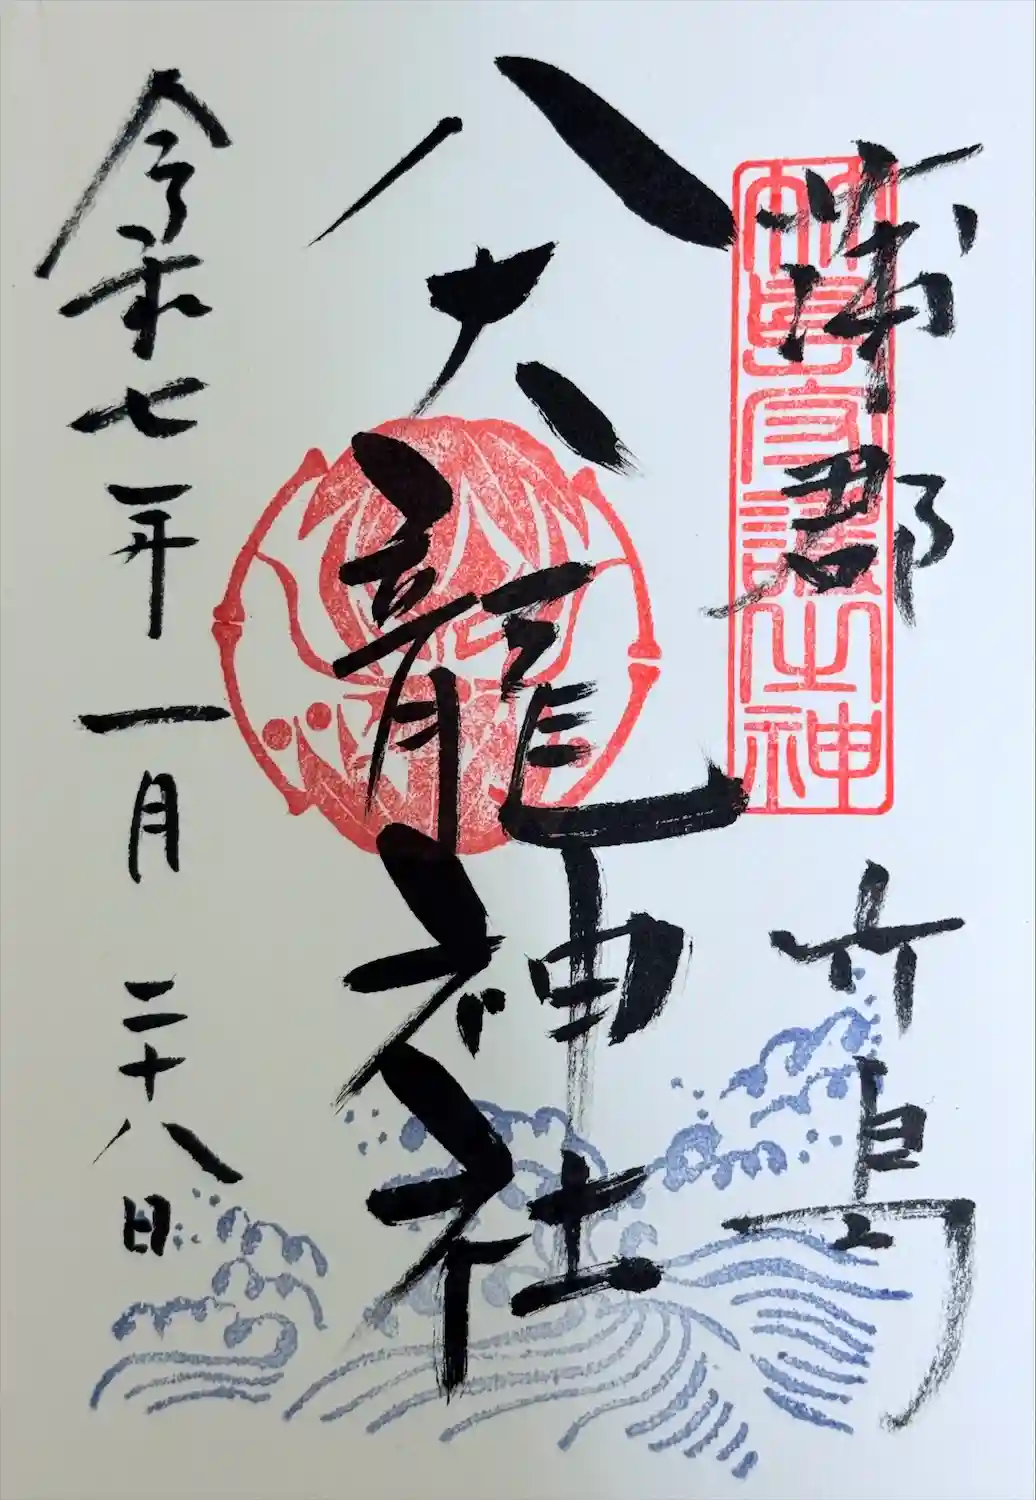 蒲郡 竹島
竹島守護之神
八大龍神社
令和七年 一月 二十八日